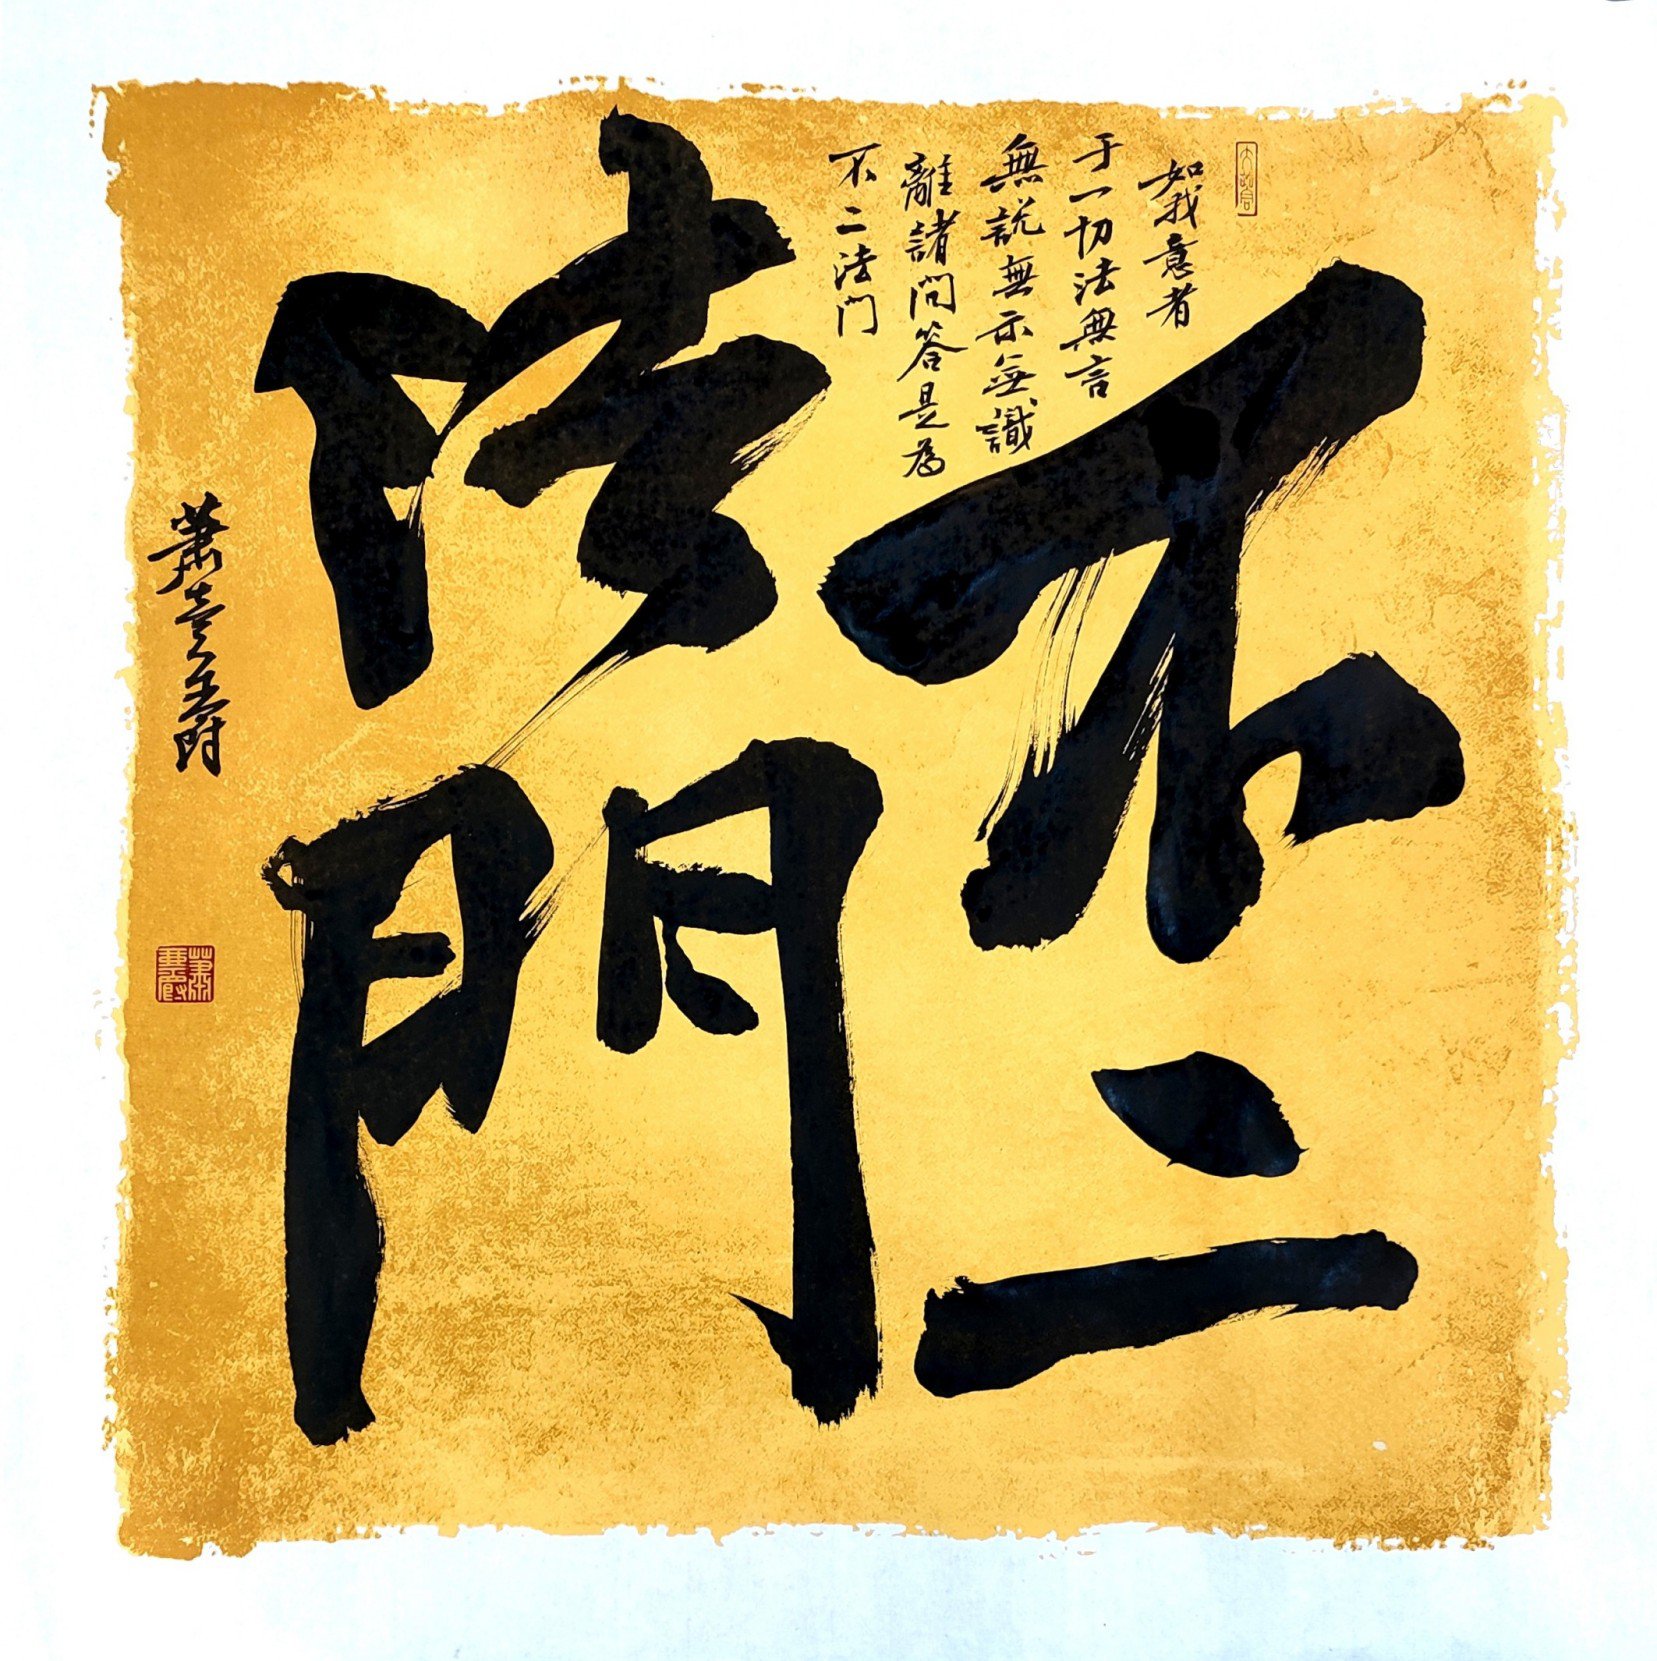 不二
法門
如我意者
于一切法無言
無説無示無識
離諸問答是為
不二法門
蕭